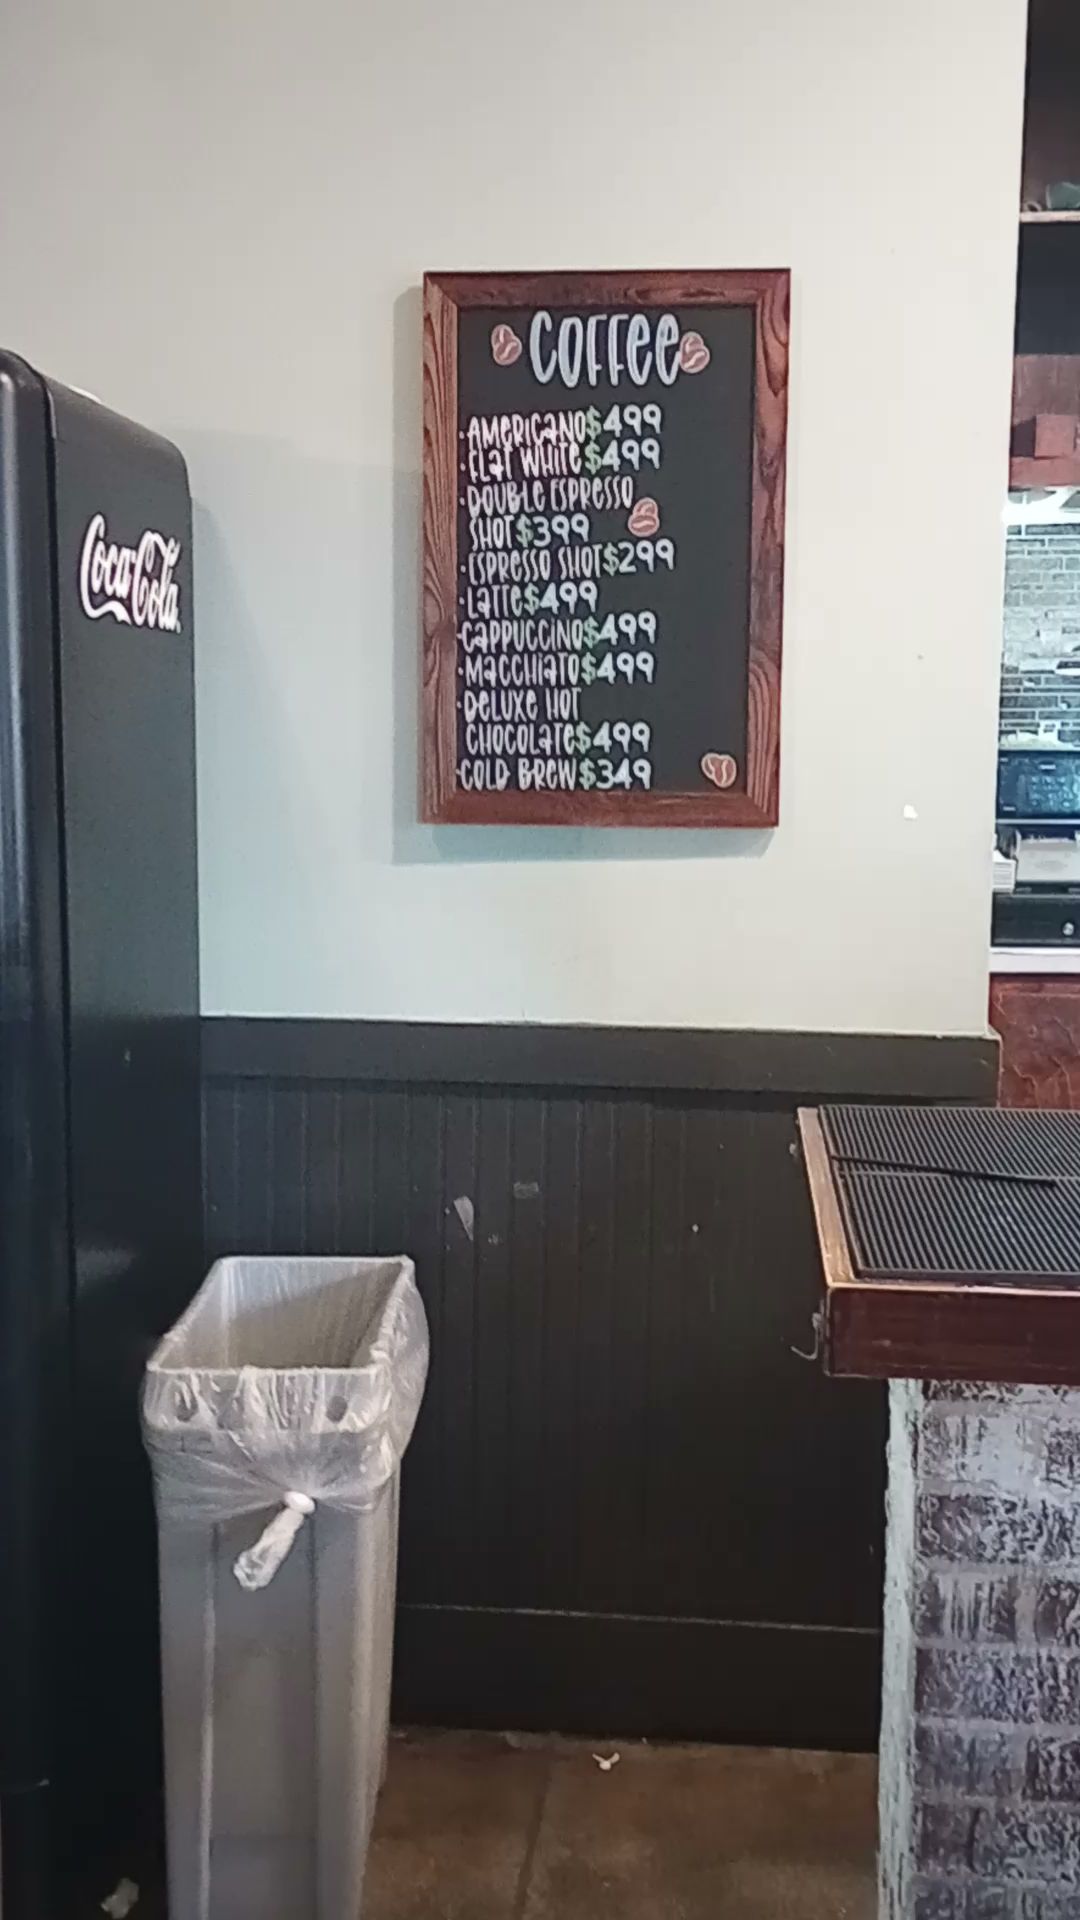 COFFEE
·AMERICANO$499
·FLAT WHITE$499
·DOUBLE ESPRESSO
SHOT$399
·ESPRESSO SHOT$299
·LATTE$499
·CAPPUCCINO$499
·MACCHIATO$499
·DELUXE HOT
CHOCOLATE$499
·COLD BREW$349
Coca-Cola